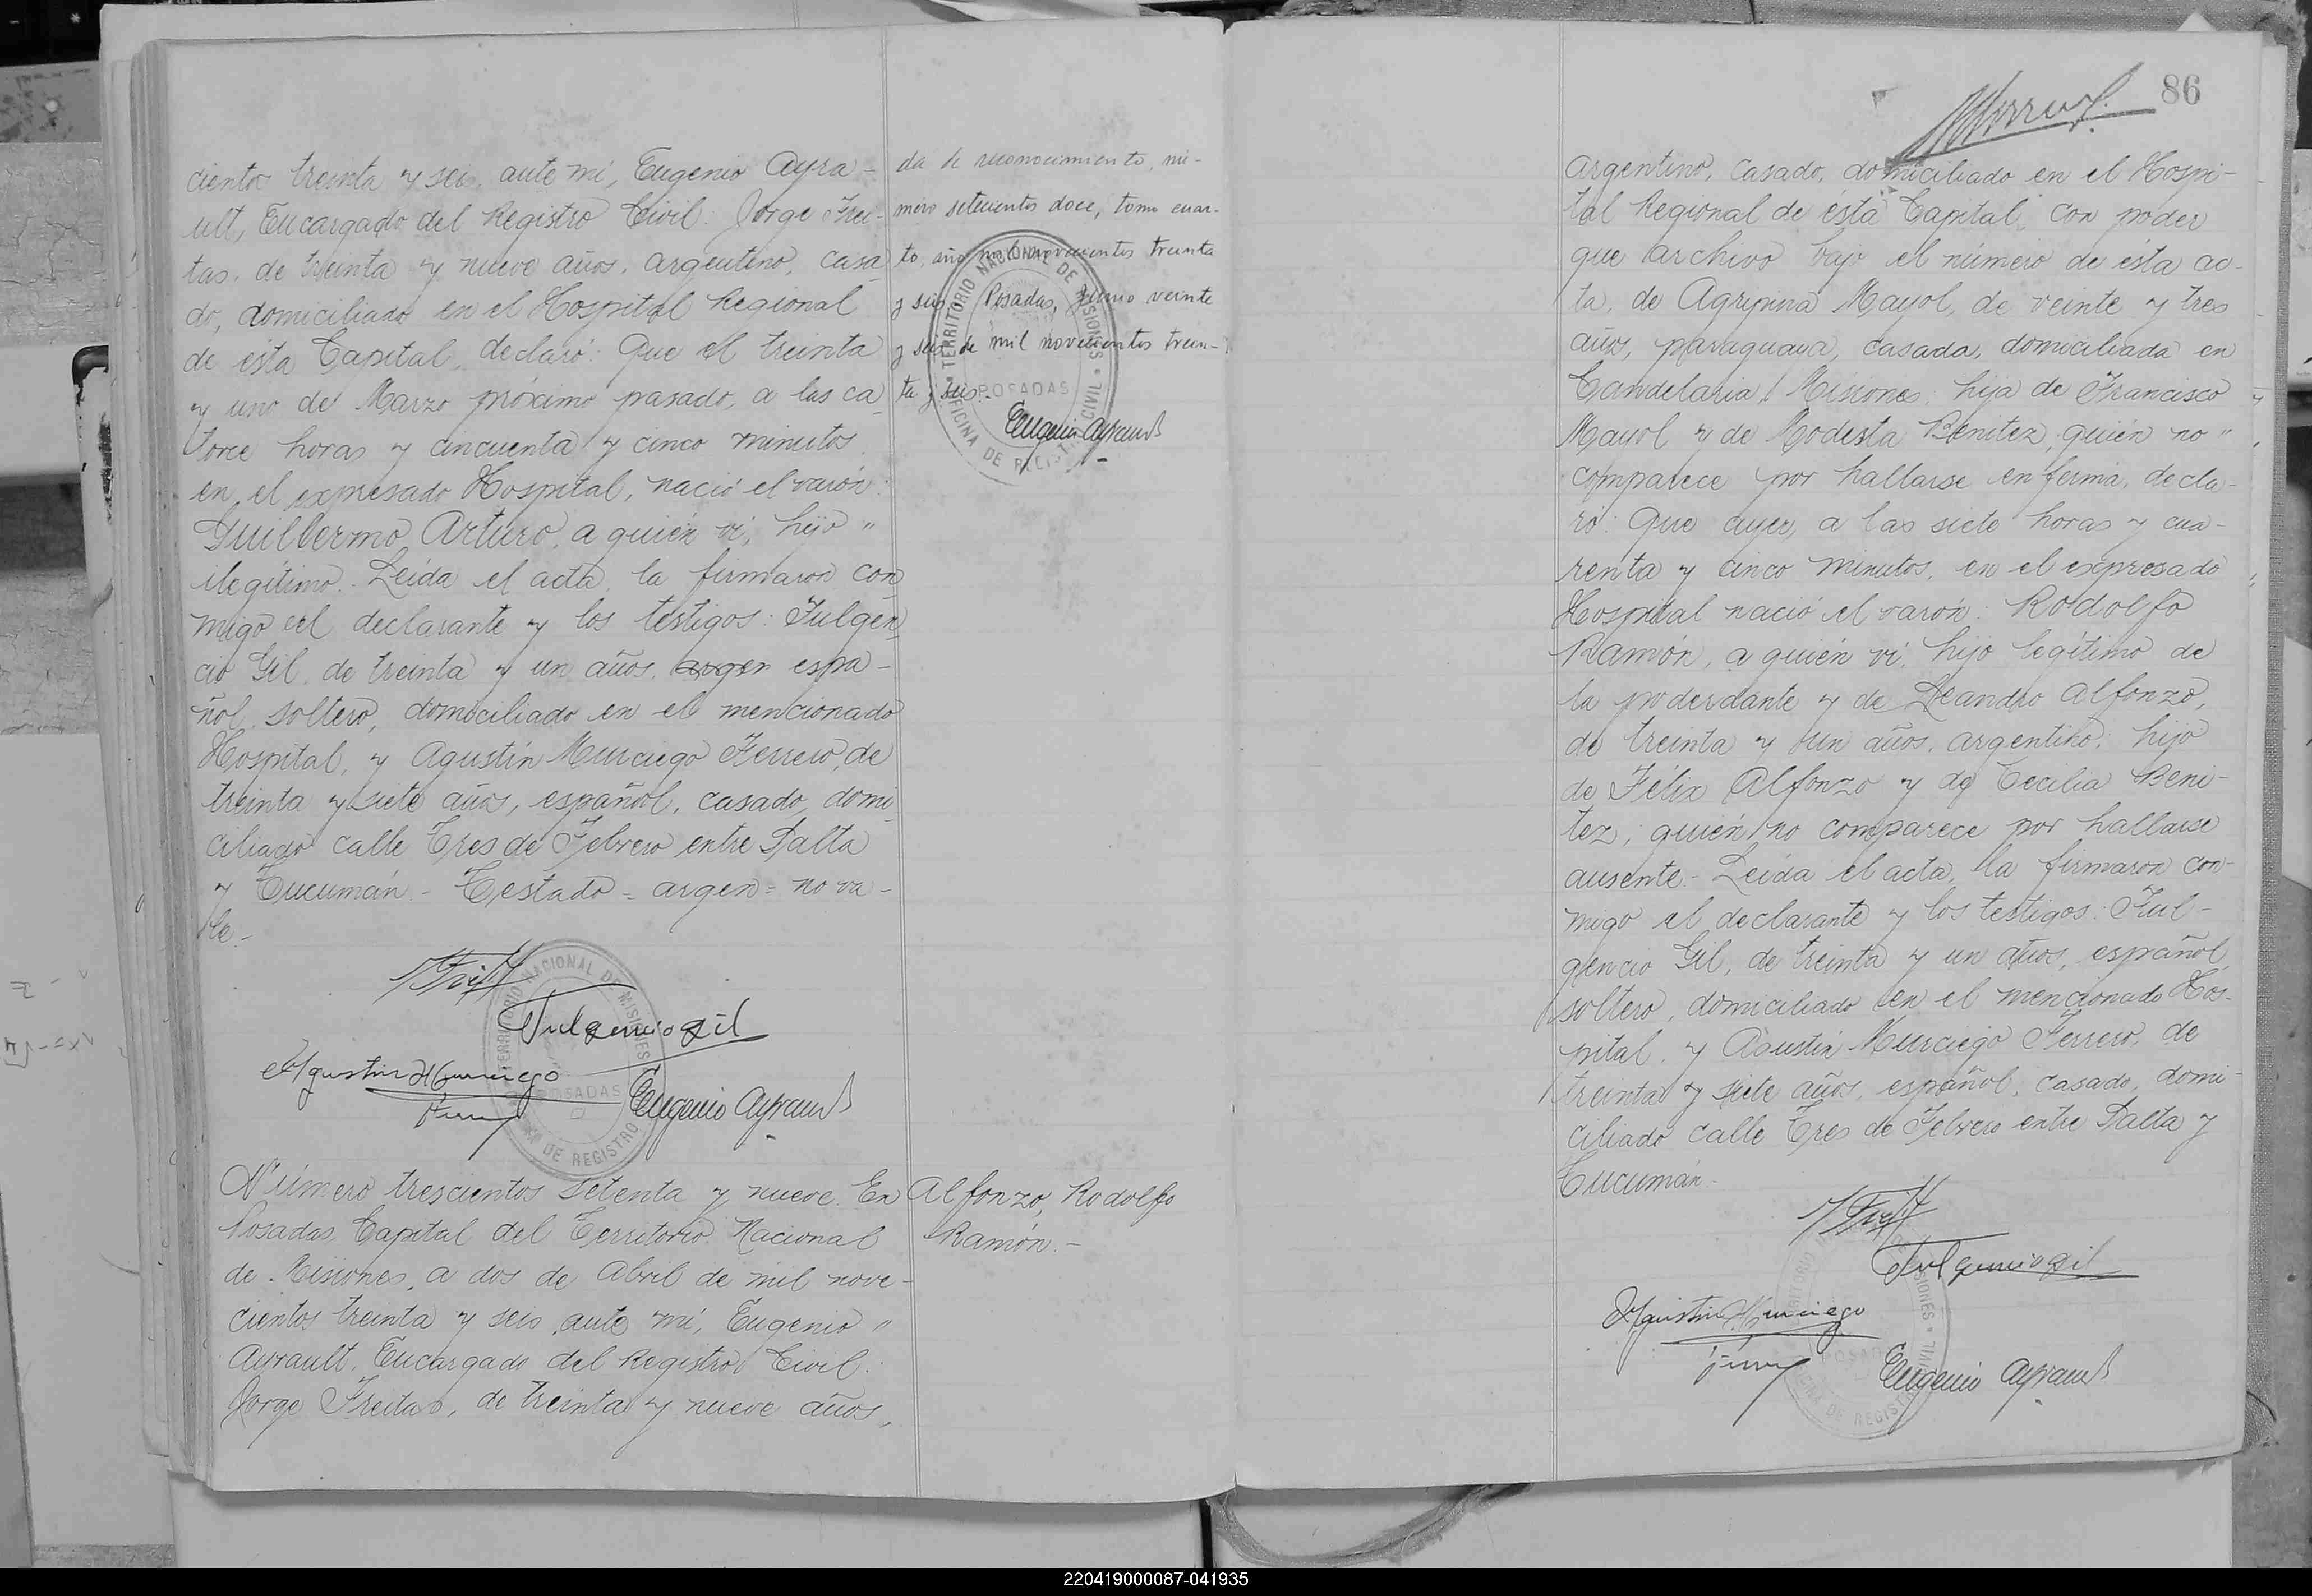 cientos treinta y seis, ante mí, Eugenio Ayra-
ult, Encargado del Registro Civil: Jorge Frei-
tas, de treinta y nueve años, argentino, casa
do, domiciliado en el Hospital Regional
de ésta Capital, declaró: Que el treinta
y uno de Marzo próximo pasado, a las ca
torce horas y cincuenta y cinco minutos
en el expresado Hospital, nació el varón:
Guillermo Arturo, a quién vi, hijo "
ilegítimo. Leída el acta, la firmaron con
migo el declarante y los testigos: Fulgen
cio Gil, de treinta y un años, argen espa-
ñol, soltero, domiciliado en el mencionado
Hospital, y Agustín Murciego Ferrero, de
treinta y siete años, español, casado, domi
ciliado calle Tres de Febrero entre Salta
y Tucumán.- Testado = argen = no va-
le.-
Fulgencio Gil
Agustin Murciego
Eugenio Ayrault
TERRITORIO NACIONAL DE MISIONES
POSADAS
DE REGISTRO
Número trescientos setenta y nueve. En
Posadas, Capital del Territorio Nacional
de Misiones, a dos de Abril de mil nove-
cientos treinta y seis, ante mí, Eugenio "
Ayrault, Encargado del Registro Civil:
Jorge Freitas, de treinta y nueve años,
da de reconocimiento, nú-
mero setecientos doce, tomo cuar-
to, año mil novecientos treinta
y seis. Posadas, Junio veinte
y seis de mil novecientos trein-
ta y seis.-
Eugenio Ayrault
TERRITORIO NACIONAL DE MISIONES
POSADAS
OFICINA DE REGISTRO CIVIL
Alfonzo, Rodolfo
Ramón.-
86
argentino, casado, domiciliado en el Hospi-
tal Regional de ésta Capital, con poder
que archivo bajo el número de ésta ac-
ta, de Agripina Mayol, de veinte y tres
años, paraguaya, casada, domiciliada en
Candelaria, Misiones, hija de Francisco
Mayol y de Modesta Benitez, quién no "
comparece por hallarse enferma, decla-
ró: Que ayer, a las siete horas y cua-
renta y cinco minutos, en el expresado
Hospital nació el varón: Rodolfo
Ramón, a quién vi, hijo legítimo de
la poderdante y de Leandro Alfonzo,
de treinta y un años, argentino, hijo
de Félix Alfonzo y de Cecilia Beni-
tez, quién no comparece por hallarse
ausente.- Leída el acta, la firmaron con-
migo el declarante y los testigos: Ful-
gencio Gil, de treinta y un años, español,
soltero, domiciliado en el mencionado Hos-
pital, y Agustín Murciego Ferrero, de
treinta y siete años, español, casado, domi-
ciliado calle Tres de Febrero entre Salta y
Tucumán.-
Fulgencio Gil
Agustin Murciego
Eugenio Ayrault
220419000087-041935